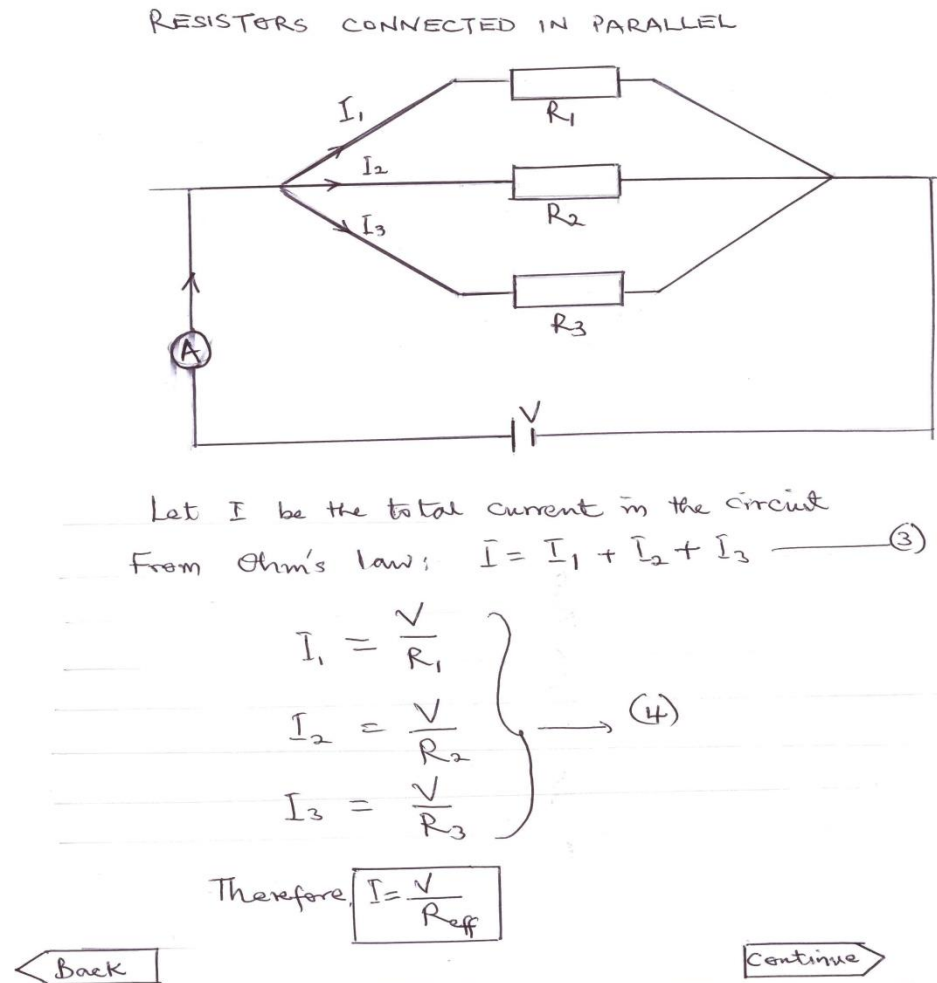 RESISTORS CONNECTED IN PARALLEL
I₁
R₁
I₂
R₂
I₃
R₃
A
V
Let I be the total current in the circuit
From Ohm's law: I = I₁ + I₂ + I₃ ——— ③
I₁ = V/R₁
I₂ = V/R₂ → ④
I₃ = V/R₃
Therefore, I = V/Reff
Back
Continue